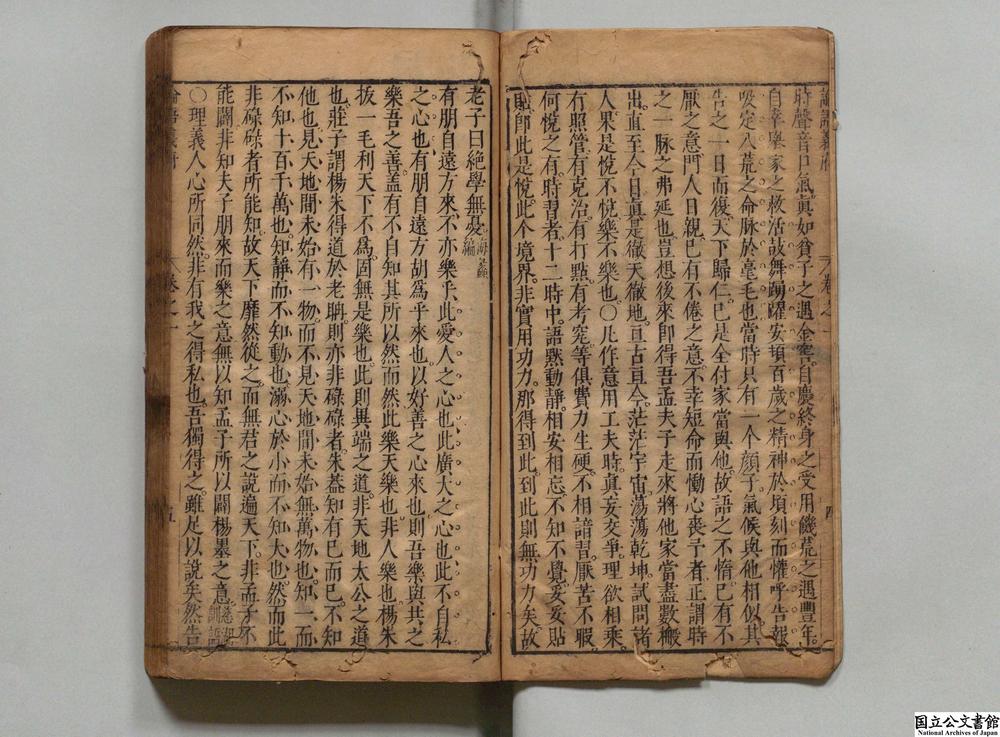 時聲音口氣真如貧子之遇金窖自慶終身之受用饑荒之遇豐年
自幸舉家之救活故舞蹈躍安頓百歲之精神於頃刻而懽呼告報
吸定八荒之命脈於毫毛也當時只有一个顏子氣候與他相似其
告之一日而復天下歸仁已是全付家當與他故語之不惰已有不
厭之意門人日親已有不倦之意不幸短命而慟心喪予者正謂時
之一脈之弗延也豈想後來即得吾孟夫子走來將他家當盡數搬
出直至今日真是徹天徹地亘古亘今茫茫宇宙蕩蕩乾坤試問諸
人果是悅不悅樂不樂也〇凡作意用工夫時真妄交爭理欲相乘
有照管有克治有打點有考究等俱費力生硬不相諳習厭苦不暇
何悅之有時習者十二時中語默動靜相安相忘不知不覺妥妥貼
貼即此是悅此个境界非實用功力那得到此到此則無功力矣故
老子曰絕學無憂
有朋自遠方來不亦樂乎此愛人之心也此廣大之心也此不自私
之心也有朋自遠方胡為乎來也以好善之心來也則吾樂與共之
樂吾之善蓋有不自知其所以然而然此樂天樂也非人樂也楊朱
拔一毛利天下不為固無是樂也此則異端之道非天地太公之道
也莊子謂楊朱得道於老聃則亦非碌碌者朱蓋知有已而已不知
他也見天地間未始有一物而不見天地間未始無萬物也知一而
不知十百千萬也知靜而不知動也溺心於小而不知大也然而此
非碌碌者所能知故天下靡然從之而無君之說遍天下非孟子不
能闢非知夫子朋來而樂之意無以知孟子所以闢楊墨之意
〇理義人心所同然非有我之得私也吾獨得之雖足以說矣然告
四
卷之一
五
国立公文書館
National Archives of Japan